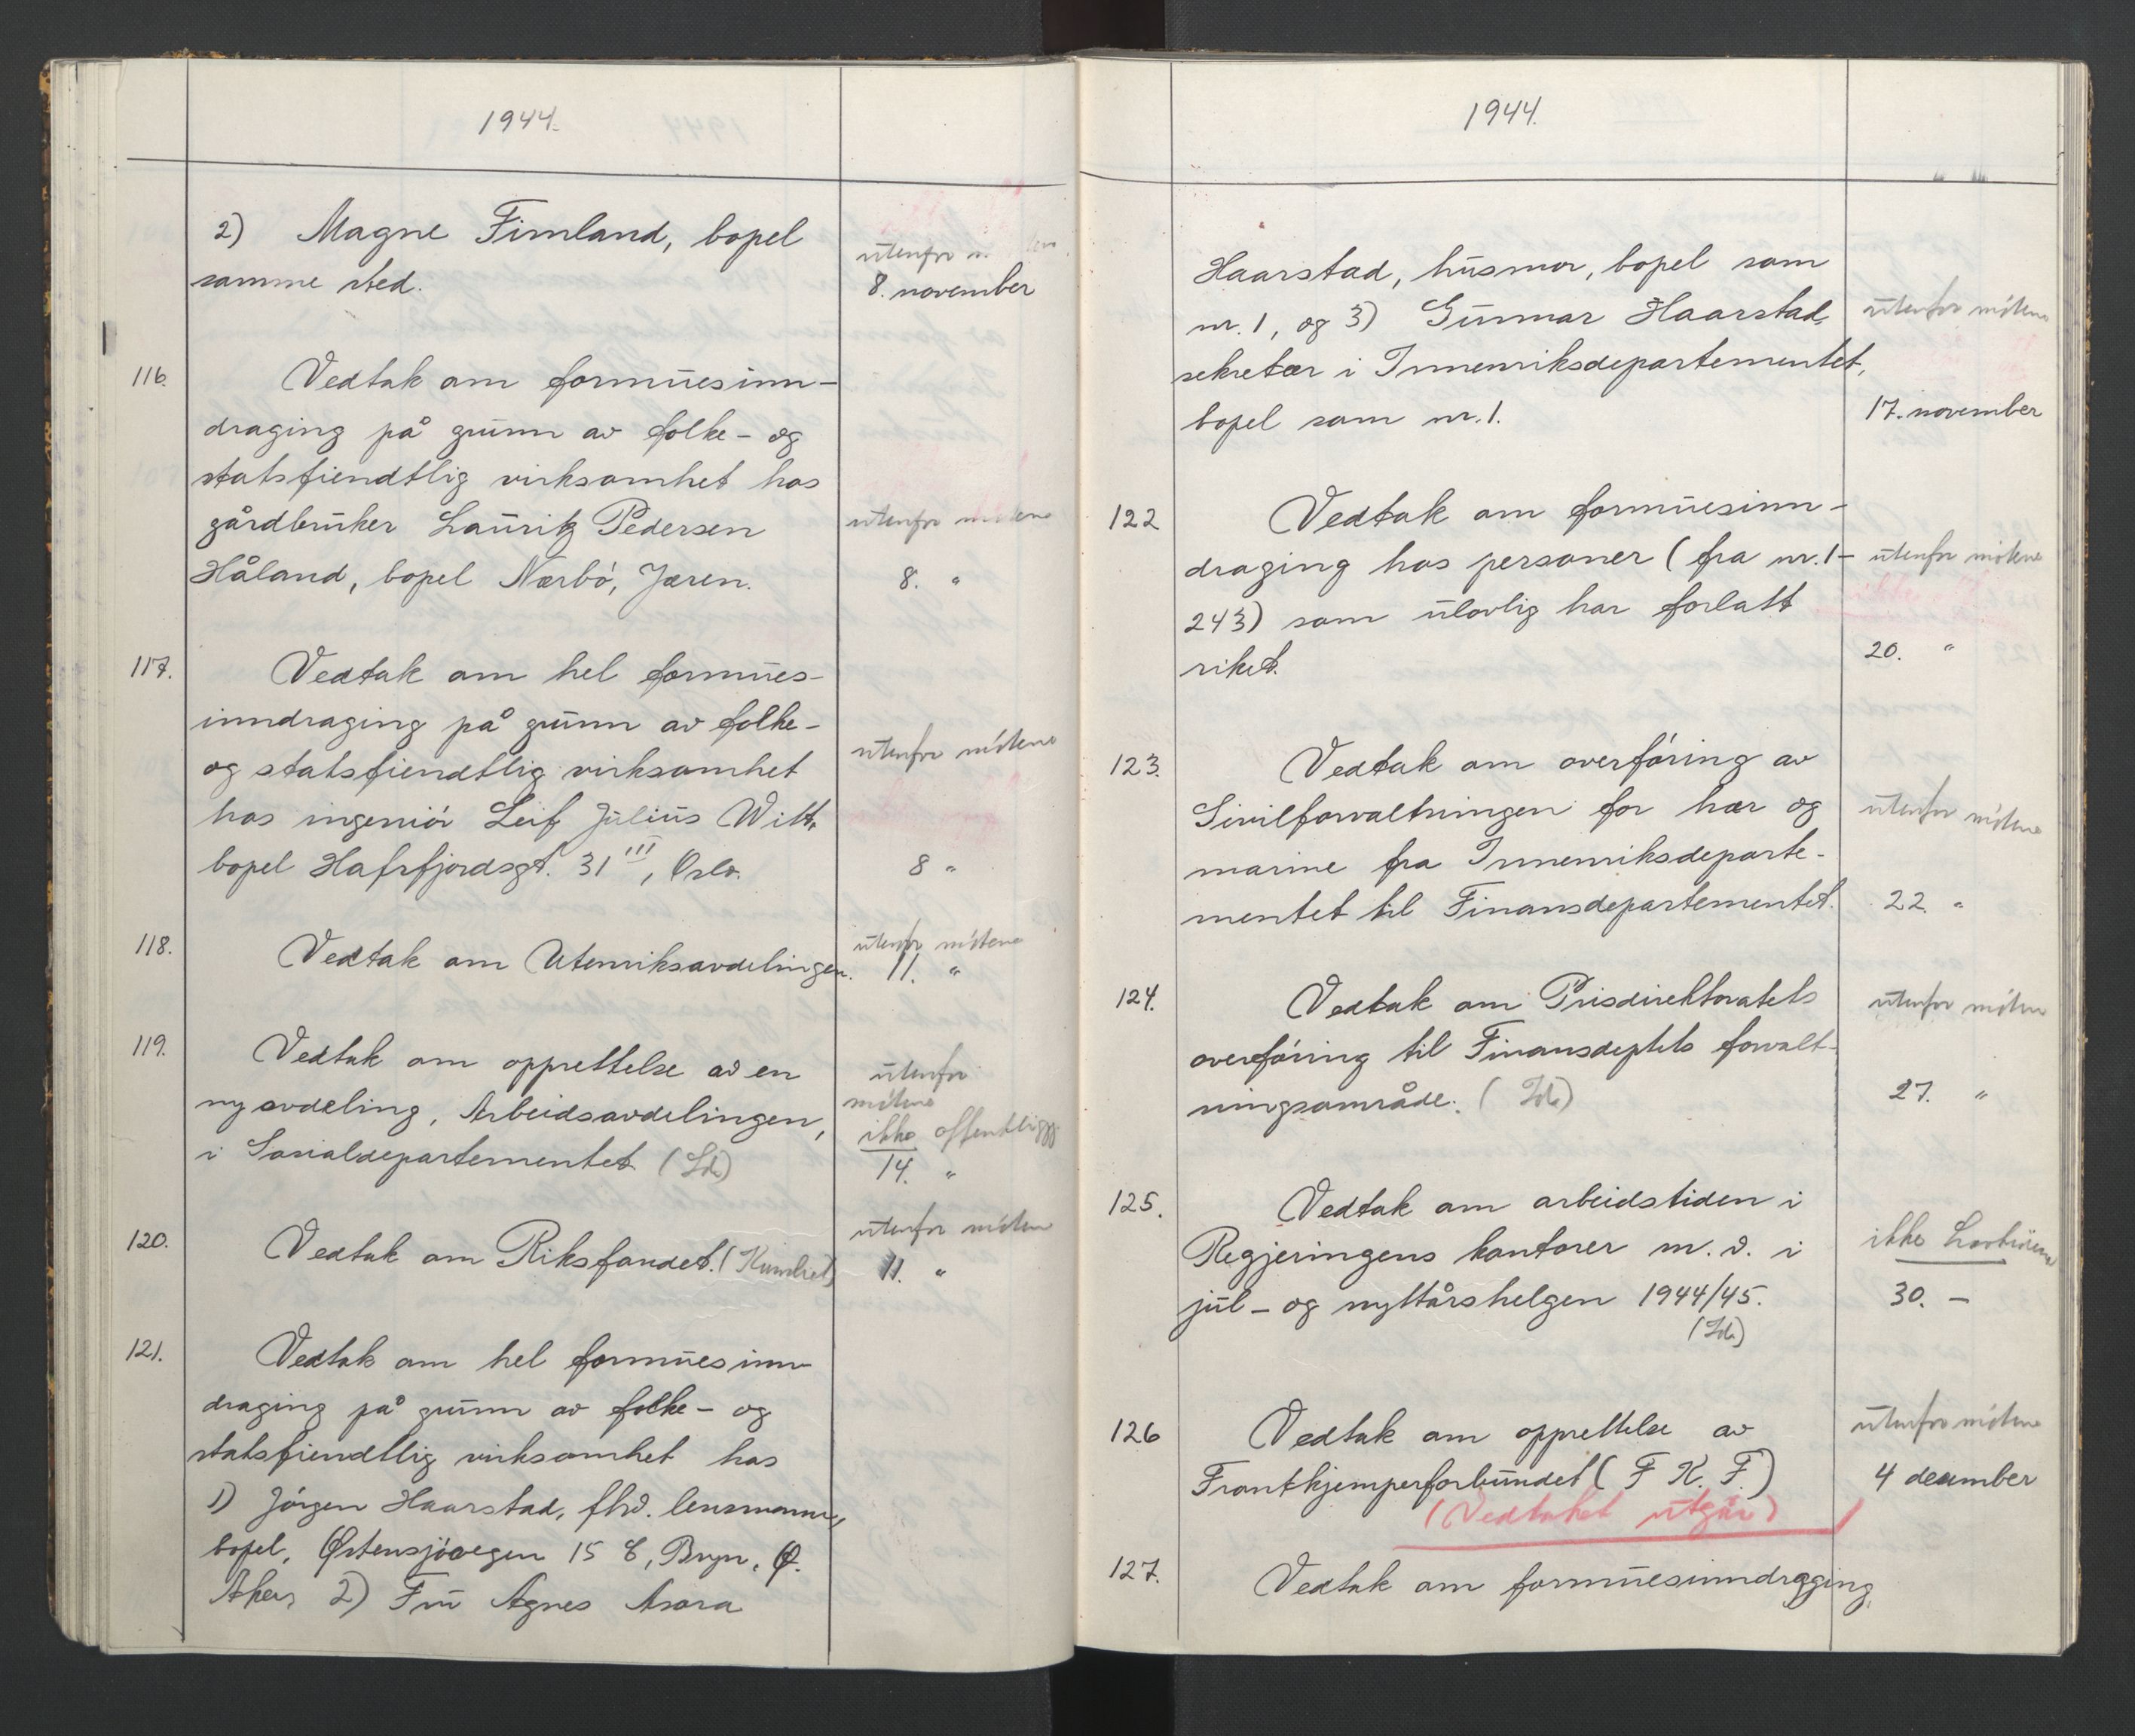 1944.
2) Magne Fimland, bopel
samme sted.
utenfor
8. november
116. Vedtak om formuesinn-
draging på grunn av folke- og
statsfiendtlig virksomhet hos
gårdbruker Lauritz Pedersen
Håland, bopel Nærbó, Jæren.
utenfor mótene
8. "
117. Vedtak om hel formues-
inndraging på grunn av folke-
og statsfiendtlig virksomhet
hos ingeniór Leif Julius Witt,
bopel Hafrfjordsgt. 31 III, Oslo.
utenfor mótene
8 "
118. Vedtak om Utenriksavdelingen.
utenfor mótene
11. "
119. Vedtak om opprettelse av en
ny avdeling, Arbeidsavdelingen,
i Sosialdepartementet
utenfor
mótene
ikke offentliggj
14. "
120. Vedtak om Riksfondet.
utenfor mótene
11. "
121. Vedtak om hel formuesinn-
draging på grunn av folke- og
statsfiendtlig virksomhet hos
1) Jórgen Haarstad, fhv. lensmann,
bopel, Østensjóvegen 15 C, Bryn, Ø.
Aker, 2) Fru Agnes Asora
1944.
Haarstad, husmor, bopel som
nr. 1, og 3) Gunnar Haarstad,
sekretær i Innenriksdepartementet,
bopel som nr. 1.
utenfor mótene
17. november
122 Vedtak om formuesinn-
draging hos personer (fra nr. 1-
243) som ulovlig har forlatt
riket.
utenfor mótene
20. "
123. Vedtak om overfóring av
Sivilforvaltningen for hær og
marine fra Innenriksdeparte-
mentet til Finansdepartementet.
utenfor mótene
22. "
124. Vedtak om Prisdirektoratets
overfóring til Finansdeptets forvalt-
ningsområde.
utenfor mótene
27. "
125. Vedtak om arbeidstiden i
Regjeringens kontorer m. v. i
jul- og nyttårshelgen 1944/45.
ikke Lovtidene
30. -
126 Vedtak om opprettelse av
Frontkjemperforbundet (F. K. F.)
(Vedtaket utgår)
utenfor mótene
4 desember
127. Vedtak om formuesinndragging,